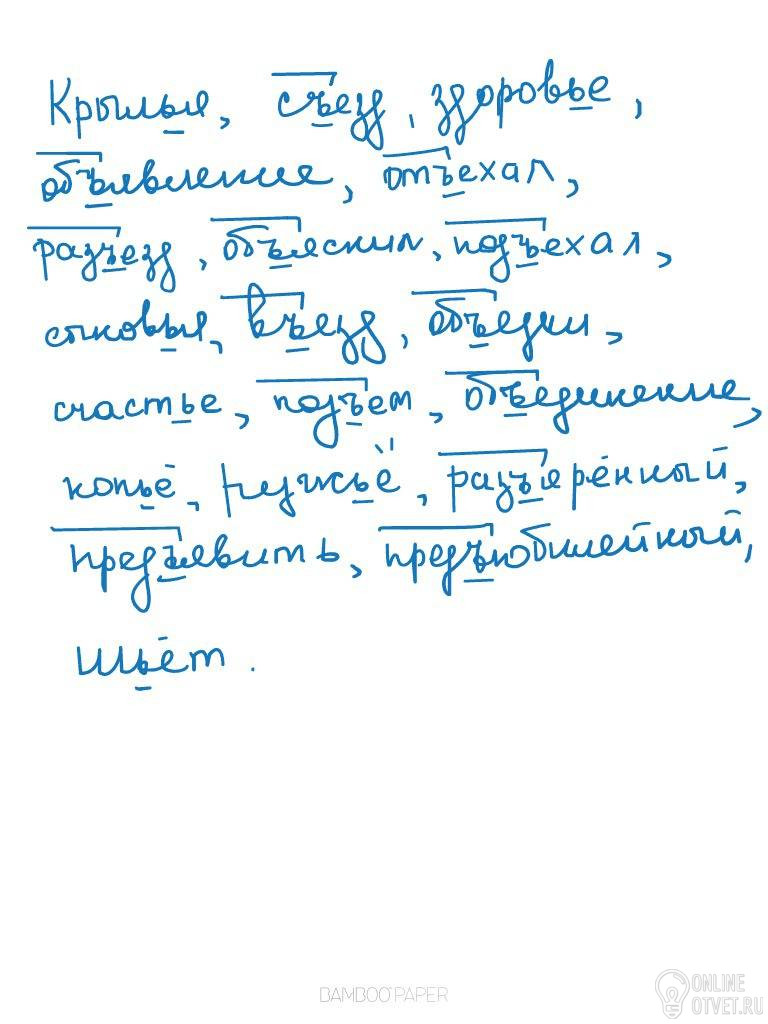 Крылья, съезд, здоровье,
объявление, отъехал,
разъезд, объяснил, подъехал,
сыновья, въезд, объедки,
счастье, подъем, объединение,
копьё, ружьё, разъярённый,
предъявить, предъюбилейный,
шьёт.
BAMBOO PAPER
ONLINE
OTVET.RU